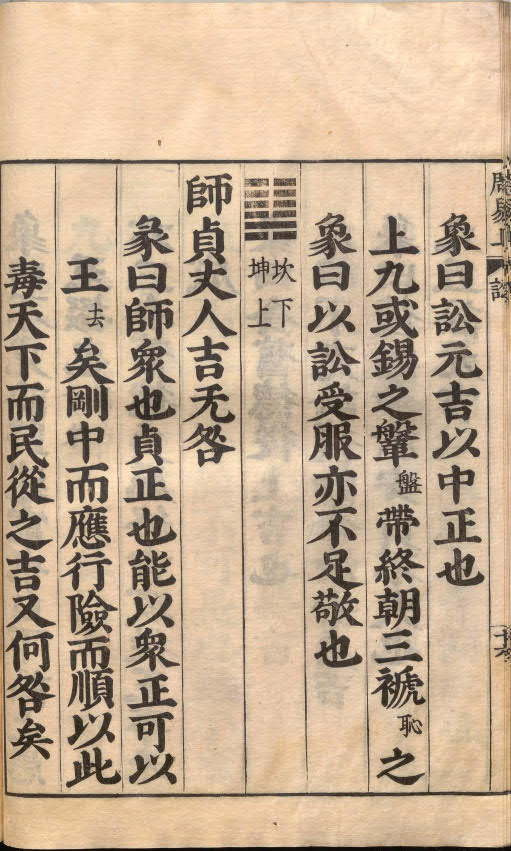 象曰訟元吉以中正也
上九或錫之鞶盤帶終朝三褫恥之
象曰以訟受服亦不足敬也
䷆坎下
坤上
師貞丈人吉无咎
彖曰師衆也貞正也能以衆正可以
王去矣剛中而應行險而順以此
毒天下而民從之吉又何咎矣